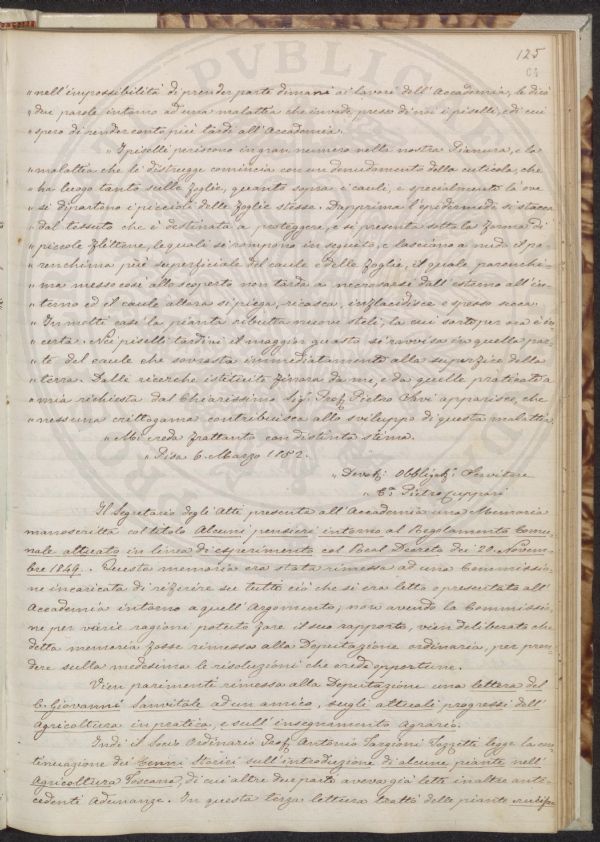 125
„ nell'impossibilità di prender parte dimani ai lavori dell'Accademia, le dirò
„ due parole intorno ad una malattia che invade presso di noi i piselli, e di cui
„ spero di render conto più tardi all'Accademia.
„ I piselli periscono in gran numero nella nostra Pianura, e la
„ malattia che li distrugge comincia con un denudamento della cuticola, che
„ ha luogo tanto sulle foglie, quanto sopra i cauli, e specialmente là ove
„ si dipartono i piccioli delle foglie stesse. Dapprima l'epidermide si stacca
„ dal tessuto che è destinata a proteggere, e si presenta sotto la forma di
„ piccole flittene, le quali si rompono in seguito, e lasciano a nudo il pa=
„ renchima più superficiale del caule e delle foglie, il quale parenchi=
„ ma messo così allo scoperto non tarda a necrosarsi dall'esterno all'in=
„ terno ed il caule allora si piega, ricasca, inflaccidisce e spesso secca.
„ In molti casi la pianta ributta nuovi steli, la cui sorte per ora è in=
„ certa. Nei piselli tardini il maggior guasto si ravvisa in quella par=
„ te del caule che sovrasta immediatamente alla superfice della
„ terra. Dalle ricerche istituite finora da me, e da quelle praticate a
„ mia richiesta dal Chiarissimo Sig. Prof. Pietro Savi apparisce, che
„ nessuna crittogama contribuisca allo sviluppo di questa malattia.
„ Mi creda frattanto con distinta stima.
„ Pisa 6. Marzo 1852.
„ Devot. Obbligat. Servitore
„ Pietro Cuppari
Il Segretario degli Atti presenta all'Accademia una Memoria
manoscritta col titolo Alcuni pensieri intorno al Regolamento Comu=
nale attivato in linea di esperimento col Real Decreto dei 20. Novem=
bre 1849. Questa memoria era stata rimessa ad una Commissio=
ne incaricata di riferire su tutto ciò che si era letto o presentato all'
Accademia intorno a quell'Argomento; non avendo la Commissio=
ne per varie ragioni potuto fare il suo rapporto, vien deliberato che
detta memoria fosse rimessa alla Deputazione ordinaria, per pren=
dere sulla medesima le risoluzioni che crede opportune.
Vien parimenti rimessa alla Deputazione una lettera del
C. Giovanni Sanvitale ad un amico, sugli attuali progressi dell'
Agricoltura in pratica, e sull'insegnamento Agrario.
Indi il Socio Ordinario Prof. Antonio Targioni Tozzetti legge la con=
tinuazione dei Cenni Storici sull'introduzione di alcune piante nell'
Agricoltura Toscana, di cui altre due parti aveva già lette in altre ante=
cedenti Adunanze. In questa terza lettura trattò delle piante